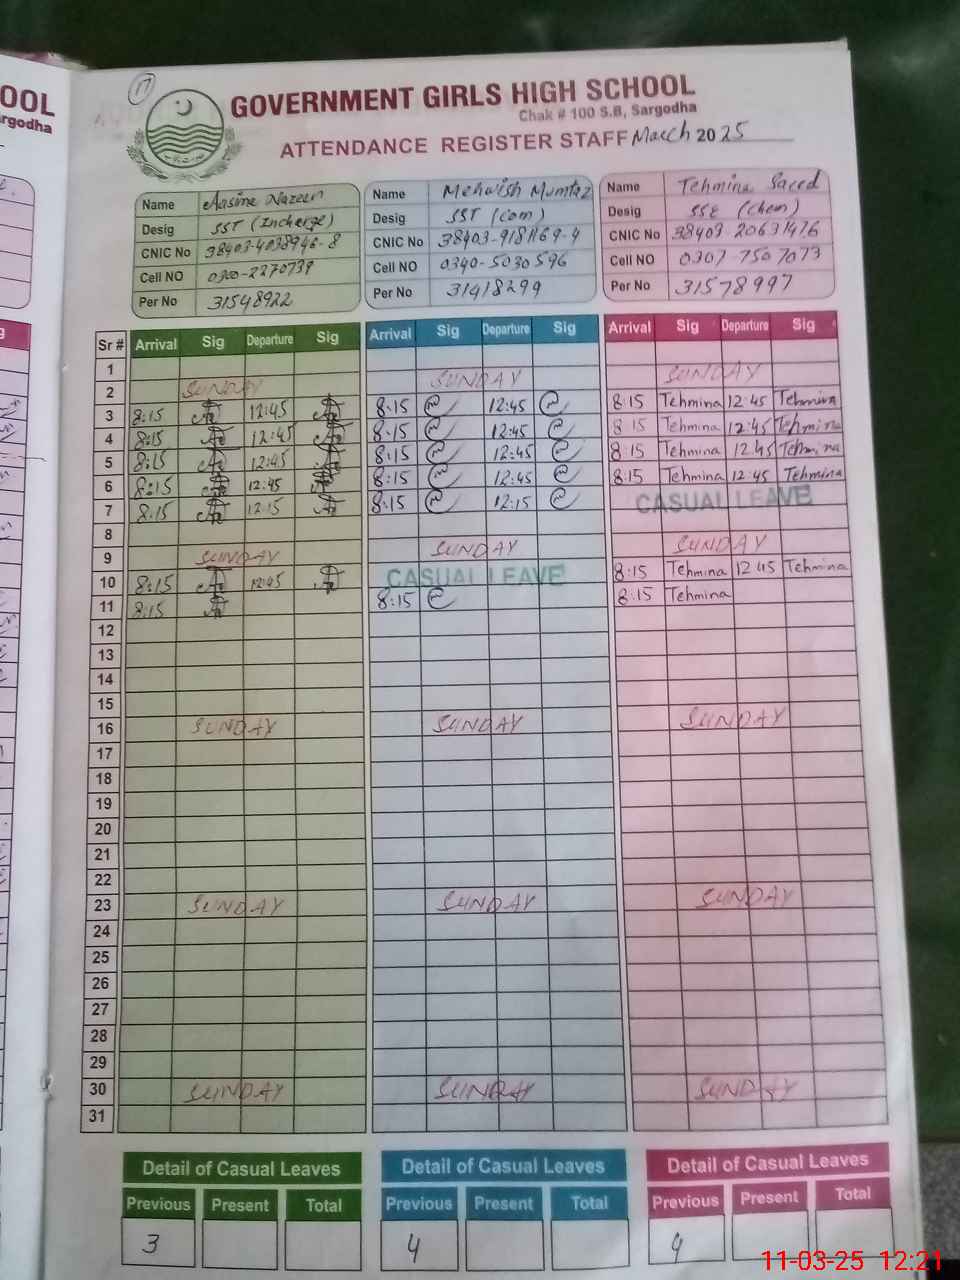 OOL
rgodha
17
GOVERNMENT GIRLS HIGH SCHOOL
Chak # 100 S.B, Sargodha
ATTENDANCE REGISTER STAFF March 2025
Name Aasima Nazeer
Desig SST (Incharge)
CNIC No 38403-4038946-8
Cell NO 0300-2270739
Per No 31548922
Name Mehwish Mumtaz
Desig SST (Com)
CNIC No 38403-9181169-4
Cell NO 0340-5030596
Per No 31418299
Name Tehmina Saeed
Desig SSE (Chem)
CNIC No 38403-20631476
Cell NO 0307-7507073
Per No 31578997
Sr # Arrival Sig Departure Sig Arrival Sig Departure Sig Arrival Sig Departure Sig
1
2 SUNDAY SUNDAY SUNDAY
3 8:15 12:45 8:15 12:45 8:15 Tehmina 12:45 Tehmina
4 8:15 12:45 8:15 12:45 8:15 Tehmina 12:45 Tehmina
5 8:15 12:45 8:15 12:45 8:15 Tehmina 12:45 Tehmina
6 8:15 12:45 8:15 12:45 8:15 Tehmina 12:45 Tehmina
7 8:15 12:15 8:15 12:15 CASUAL LEAVE
8
9 SUNDAY SUNDAY SUNDAY
10 8:15 12:45 CASUAL LEAVE 8:15 Tehmina 12:45 Tehmina
11 8:15 8:15 8:15 Tehmina
12
13
14
15
16 SUNDAY SUNDAY SUNDAY
17
18
19
20
21
22
23 SUNDAY SUNDAY SUNDAY
24
25
26
27
28
29
30 SUNDAY SUNDAY SUNDAY
31
Detail of Casual Leaves Detail of Casual Leaves Detail of Casual Leaves
Previous Present Total Previous Present Total Previous Present Total
3 4 4
11-03-25 12:21